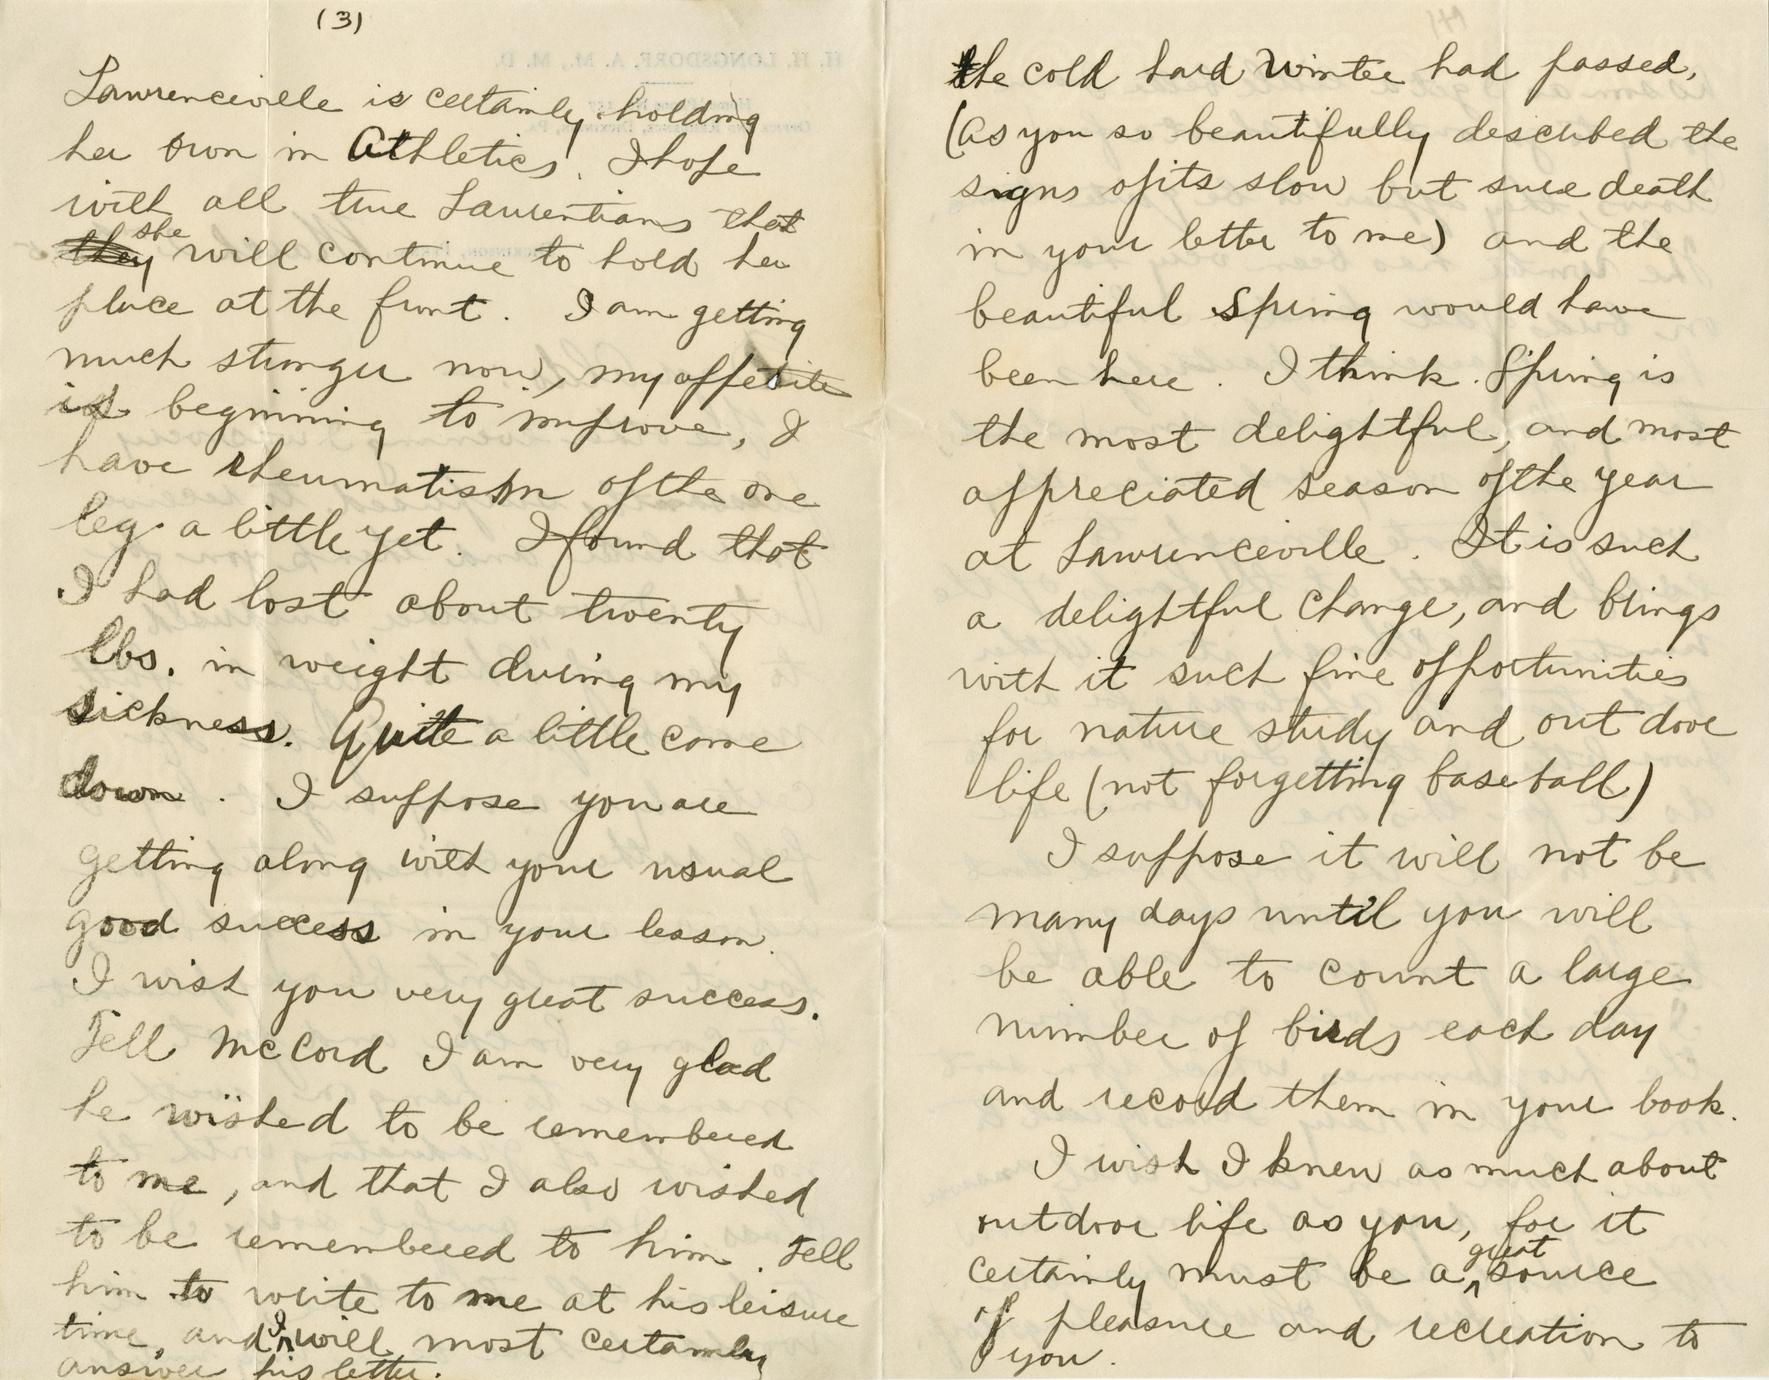 (3)
Lawrenceville is certainly holding
her own in Athletics. I hope
with all true Laurentians that
she
they will continue to hold her
place at the front. I am getting
much stronger now, my appetite
is beginning to improve, I
have rheumatism of the one
leg a little yet. I found that
I had lost about twenty
lbs. in weight during my
sickness. Quite a little come
down. I suppose you are
getting along with your usual
good success in your lesson.
I wish you very great success.
Tell McCord I am very glad
he wished to be remembered
to me, and that I also wished
to be remembered to him. Tell
him to write to me at his leisure
time, and I will most certainly
answer his letter.
H. H. LONGSDORF, A. M., M. D.
the cold hard Winter had passed,
(as you so beautifully described the
signs of its slow but sure death
in your letter to me) and the
beautiful Spring would have
been here. I think Spring is
the most delightful, and most
appreciated season of the year
at Lawrenceville. It is such
a delightful change, and brings
with it such fine opportunities
for nature study and out door
life (not forgetting base ball)
I suppose it will not be
many days until you will
be able to count a large
number of birds each day
and record them in your book.
I wish I knew as much about
outdoor life as you, for it
certainly must be a great source
of pleasure and recreation to
you.